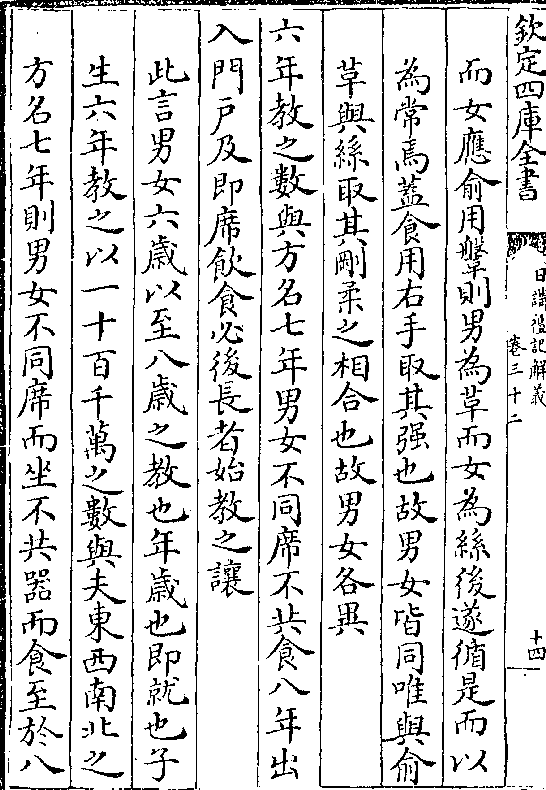 欽定四庫全書
日講禮記解義
卷三十二
十四
而女應俞用鞶則男為革而女為絲後遂循是而以
為常焉葢食用右手取其强也故男女皆同唯與俞
草與絲取其剛柔之相合也故男女各異
六年教之數與方名七年男女不同席不共食八年出
入門戸及即席飲食必後長者始教之讓
此言男女六歲以至八歲之教也年歲也即就也子
生六年教之以一十百千萬之數與夫東西南北之
方名七年則男女不同席而坐不共器而食至於八